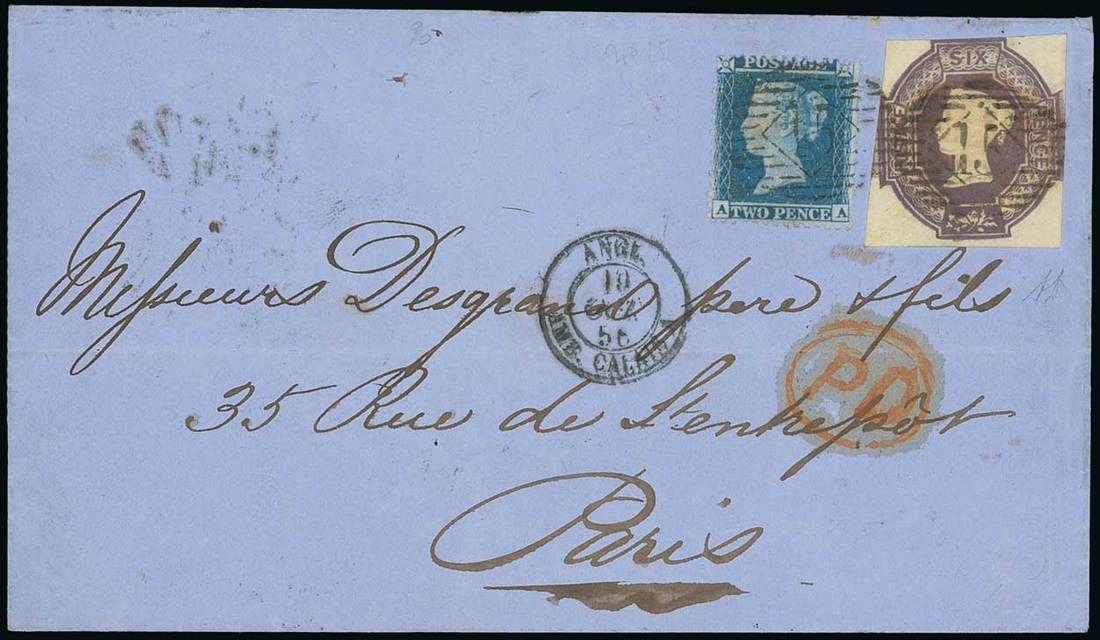 POSTAGE
A TWO PENCE A
SIX
PENCE
ANGL.
10
56
AMB. CALAIS
Messieurs Desgrand père & fils
P.D.
35 Rue de l'entrepôt
Paris